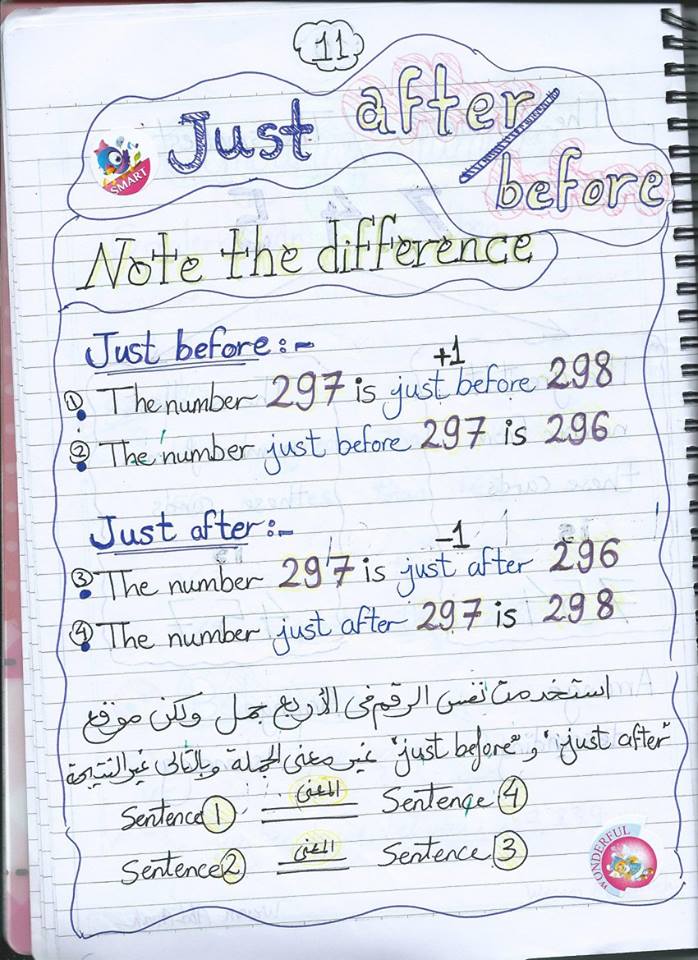 11
Just after/
before
SMART
Note the difference
Just before:-
① The number 297 is just before 298
+1
② The number just before 297 is 296
Just after:-
③ The number 297 is just after 296
-1
④ The number just after 297 is 298
استخدمت نفس الرقم فى الأربع جمل ولكن موقع
"just after" و "just before" غير معنى الجملة وبالتالى غير النتيجة
Sentence ① المعنى Sentence ④
Sentence ② المعنى Sentence ③
WONDERFUL